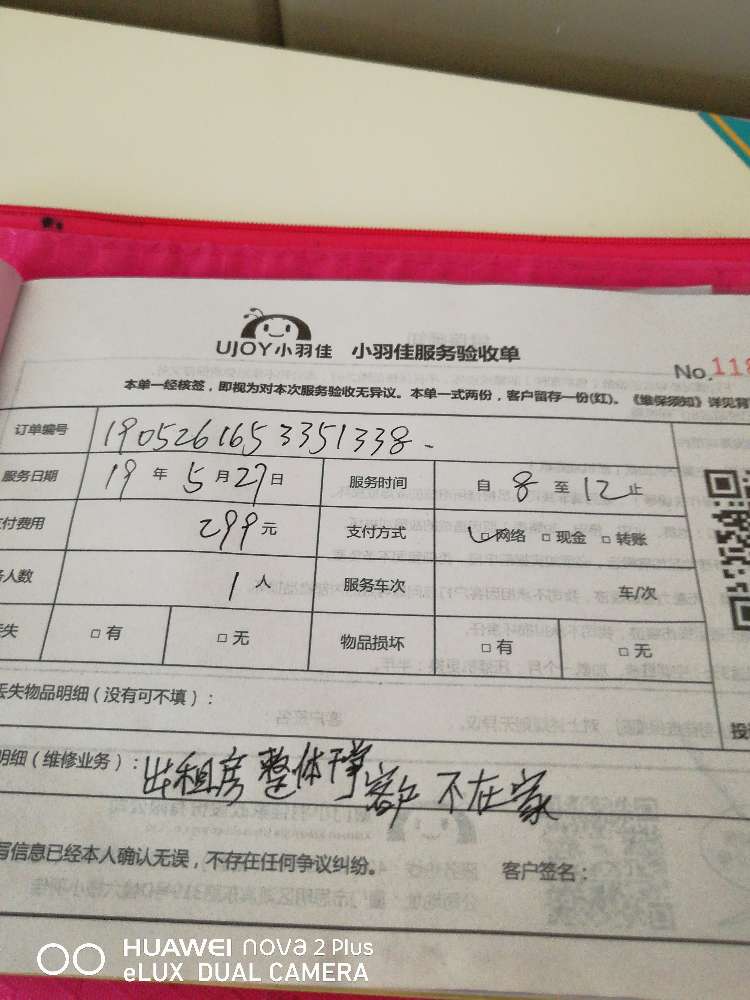 UJOY小羽佳 小羽佳服务验收单
No.118
本单一经核签，即视为对本次服务验收无异议。本单一式两份，客户留存一份(红)。《维保须知》详见背
订单编号 1905261653351338
服务日期 19年5月27日 服务时间 自8至12止
付费用 299元 支付方式 □网络 □现金 □转账
人数 1人 服务车次 车/次
失 □有 □无 物品损坏 □有 □无
丢失物品明细（没有可不填）：
明细（维修业务）：出租房整体干净 客户不在家
写信息已经本人确认无误，不存在任何争议纠纷。 客户签名：
HUAWEI nova 2 Plus
eLUX DUAL CAMERA